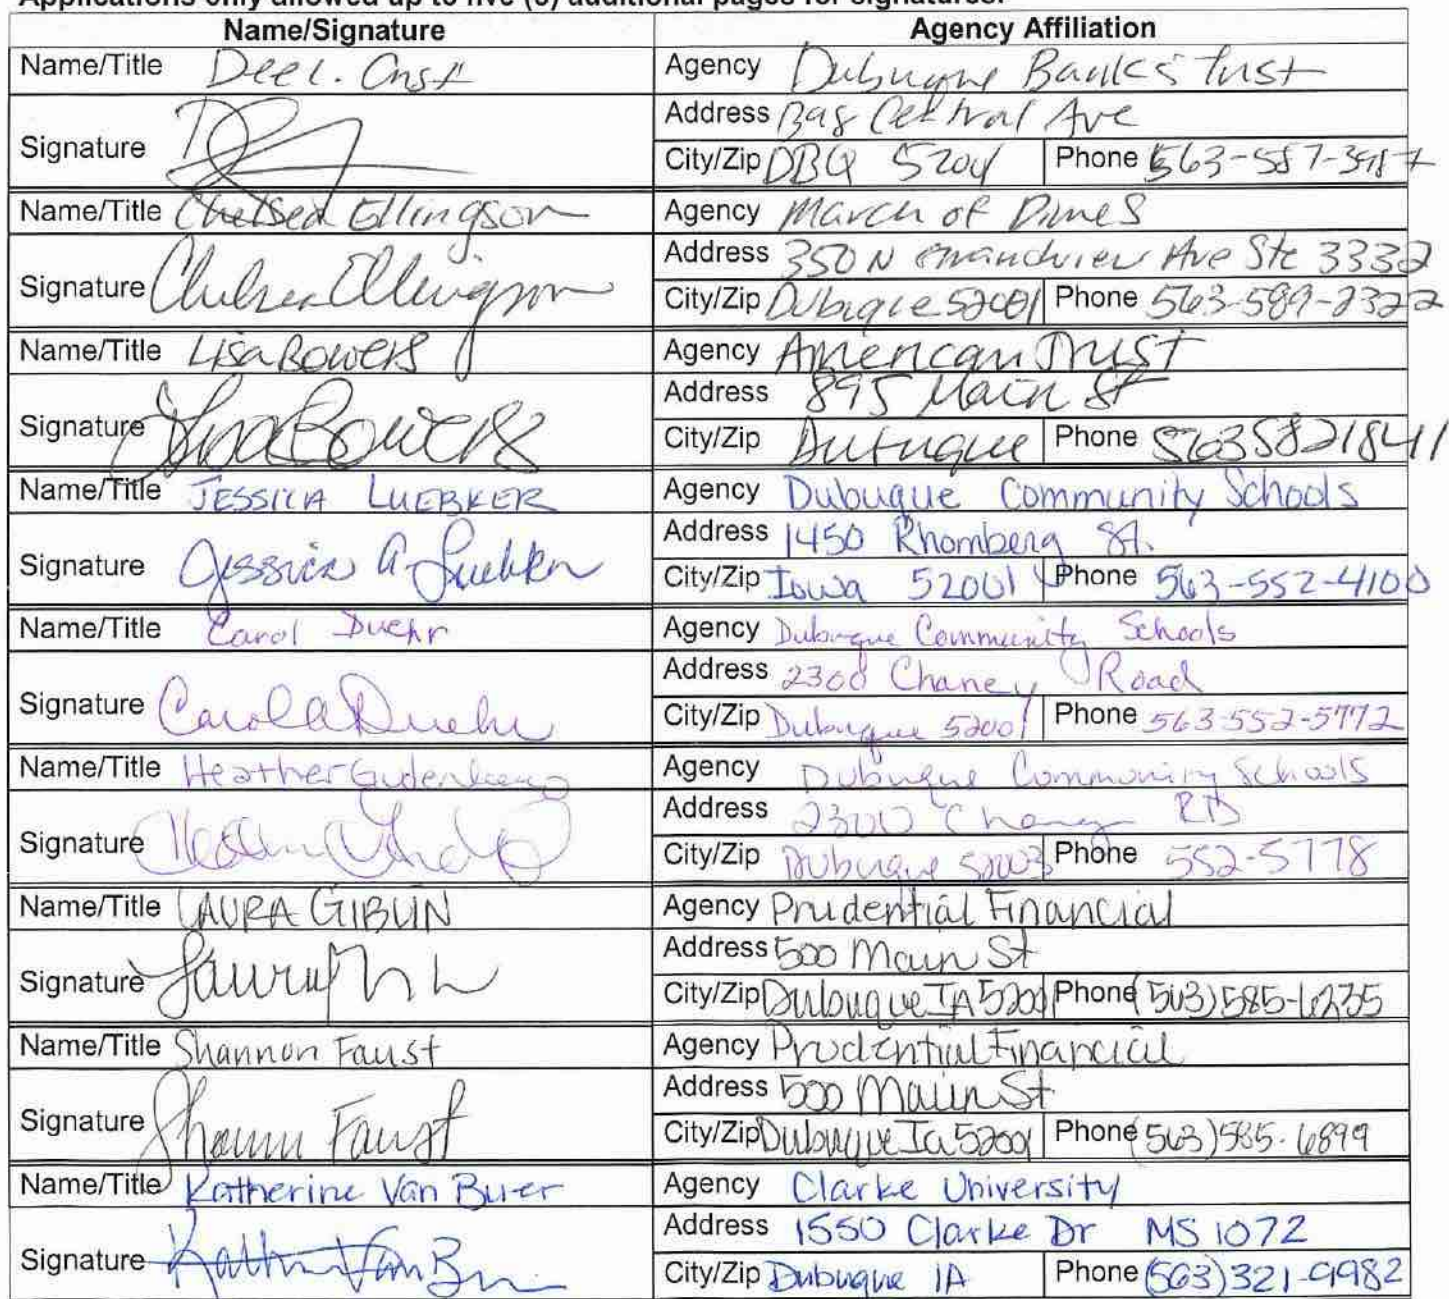 Applications only allowed up to five (5) additional pages for signatures.
Name/Signature Agency Affiliation
Name/Title Agency Dubuque Bank & Trust
Signature Address Central Ave
City/Zip DBQ Phone
Name/Title Chelsea Ellingson Agency March of Dimes
Signature Chelsea Ellingson Address 350 N Grandview Ave Ste 3332
City/Zip Dubuque 52001 Phone 563-589-2322
Name/Title Lisa Bowers Agency American Trust
Signature Lisa Bowers Address 895 Main St
City/Zip Dubuque Phone 5635821841
Name/Title JESSICA LUEBKER Agency Dubuque Community Schools
Signature Jessica A Luebker Address 1450 Rhomberg St.
City/Zip Iowa 52001 Phone 563-552-4100
Name/Title Carol Duehr Agency Dubuque Community Schools
Signature Carol A Duehr Address 2300 Chaney Road
City/Zip Dubuque 52001 Phone 563-552-5772
Name/Title Heather Agency Dubuque Community Schools
Signature Address 2300 Chaney RD
City/Zip Dubuque 52003 Phone 552-5778
Name/Title LAURA GIBLIN Agency Prudential Financial
Signature Laura Address 500 Main St
City/Zip Dubuque IA 52001 Phone (563) 585-6235
Name/Title Shannon Faust Agency Prudential Financial
Signature Shannon Faust Address 500 Main St
City/Zip Dubuque Ia 52001 Phone (563) 585-6899
Name/Title Katherine Van Buer Agency Clarke University
Signature Address 1550 Clarke Dr MS 1072
City/Zip Dubuque IA Phone (563) 321-9982